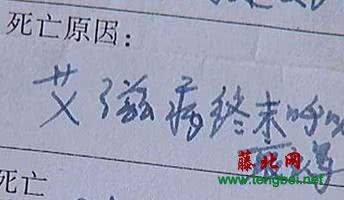 死亡原因：
艾滋病终末呼吸
衰竭
藤北网
www.tengbei.net
死亡